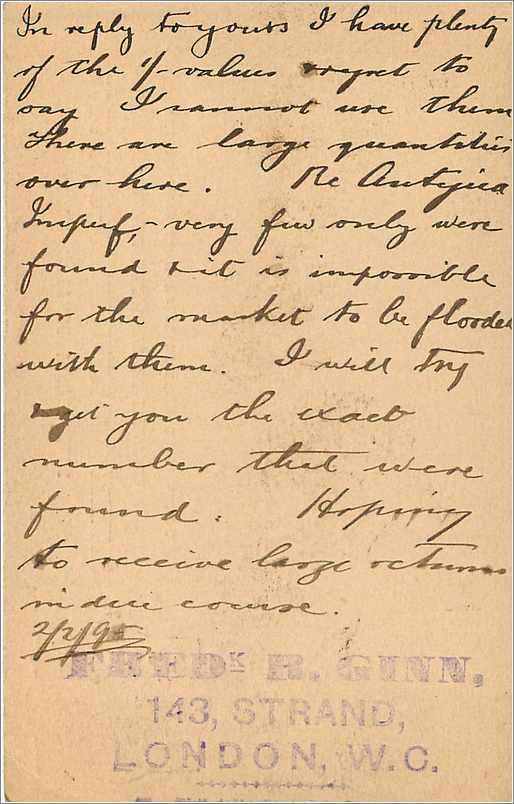 In reply to yours I have plenty
of the 1/- values & regret to
say I cannot use them
There are large quantities
over here. Re Antigua
Imperf,- very few only were
found & it is impossible
for the market to be flooded
with them. I will try
& get you the exact
number that were
found. Hoping
to receive large returns
in due course.
2/2/95
FREDK R. GINN,
143, STRAND,
LONDON, W.C.